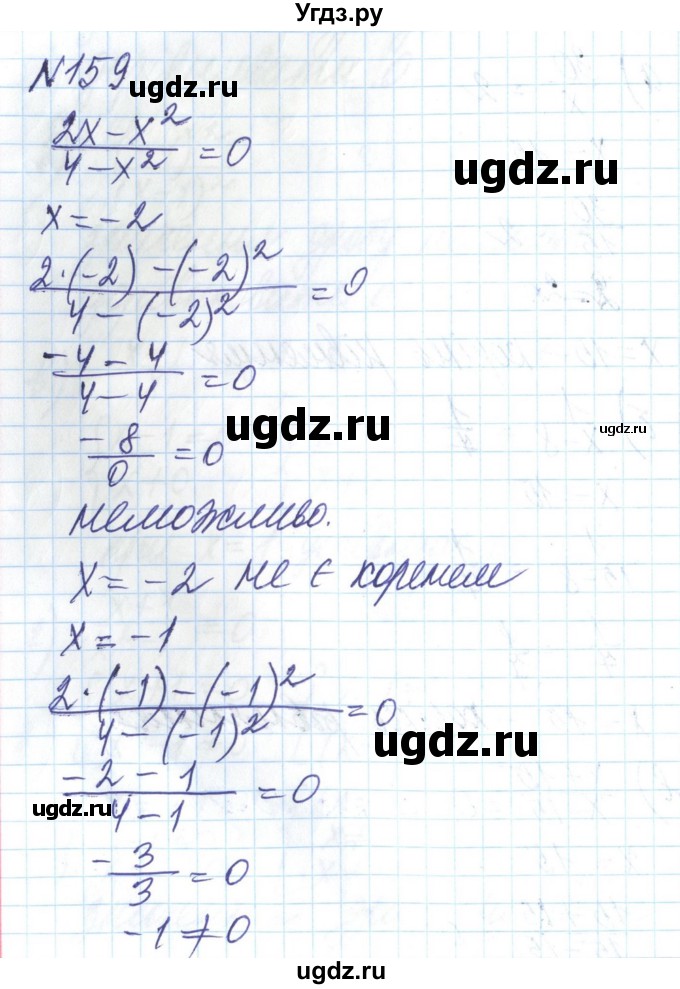 Угдз.ру
№159
ugdz.ru
(2x - x²)/(4 - x²) = 0
ugdz.ru
x = -2
(2·(-2) - (-2)²)/(4 - (-2)²) = 0
(-4 - 4)/(4 - 4) = 0
ugdz.ru
ugdz.ru
-8/0 = 0
неможливо.
x = -2 не є коренем
x = -1
(2·(-1) - (-1)²)/(4 - (-1)²) = 0
ugdz.ru
(-2 - 1)/(4 - 1) = 0
ugdz.ru
-3/3 = 0
-1 ≠ 0
ugdz.ru